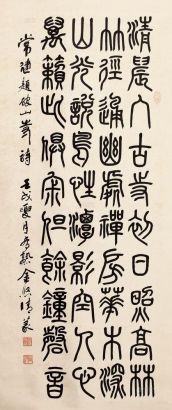 清晨入古寺初日照高林
竹徑通幽處禪房華木深
山光說鳥性潭影空人心
萬籟此俱寂但餘鐘磬音
常建題破山寺詩 壬戌夏月